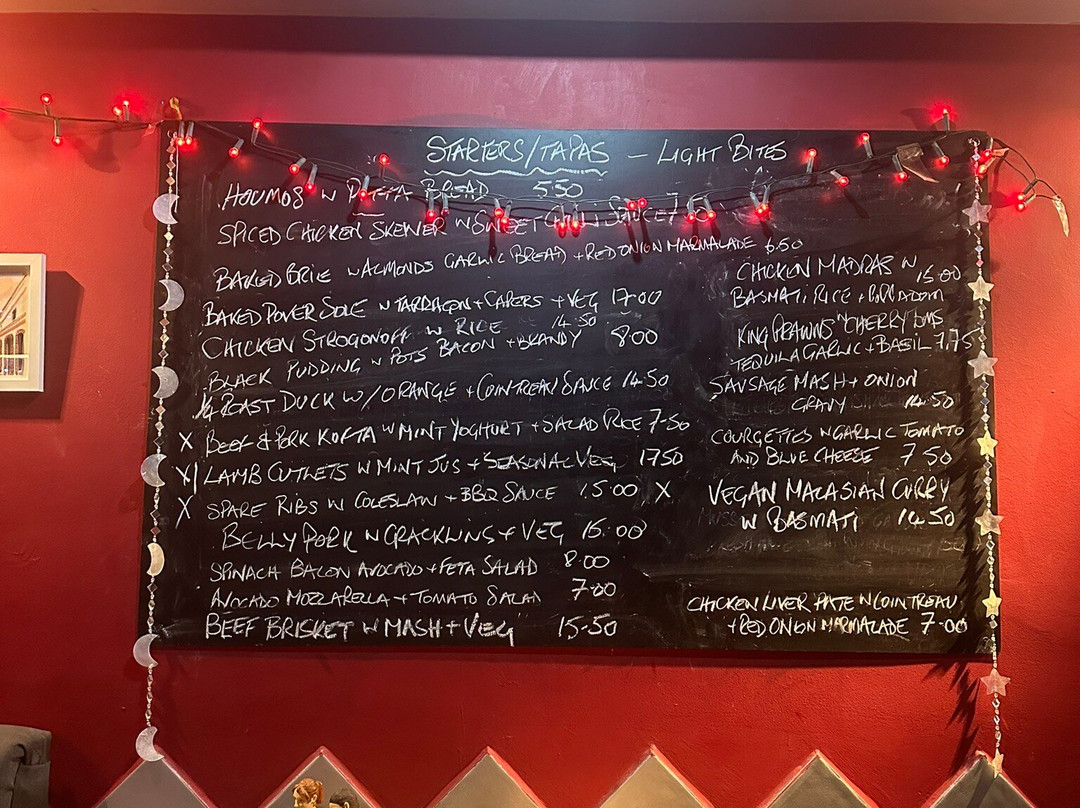 STARTERS/TAPAS – LIGHT BITES
HOUMOS W PITTA BREAD 5.50
SPICED CHICKEN SKEWER W SWEET SAUCE
BAKED BRIE W ALMONDS GARLIC BREAD + RED ONION MARMALADE 6.50
BAKED DOVER SOLE W TARRAGON + CAPERS + VEG 17.00
CHICKEN STROGONOFF W RICE 14.50
BLACK PUDDING W POTS BACON + BRANDY 8.00
¼ ROAST DUCK W/ORANGE + COINTREAU SAUCE 14.50
X BEEF & PORK KOFTA W MINT YOGHURT + SALAD RICE 7.50
X LAMB CUTLETS W MINT JUS + SEASONAL VEG 17.50
X SPARE RIBS W COLESLAW + BBQ SAUCE 15.00 X
BELLY PORK W CRACKLING + VEG 15.00
SPINACH BACON AVOCADO + FETA SALAD 8.00
AVOCADO MOZZARELLA + TOMATO SALAD 7.00
BEEF BRISKET W MASH + VEG 15.50
CHICKEN MADRAS W 15.00
BASMATI RICE + POPPADOM
KING PRAWNS W CHERRY TOMS
TEQUILA GARLIC + BASIL 7.75
SAUSAGE MASH + ONION
GRAVY 14.50
COURGETTES W GARLIC TOMATO
AND BLUE CHEESE 7.50
VEGAN MALASIAN CURRY
W BASMATI 14.50
CHICKEN LIVER PATE W COINTREAU
+ RED ONION MARMALADE 7.00